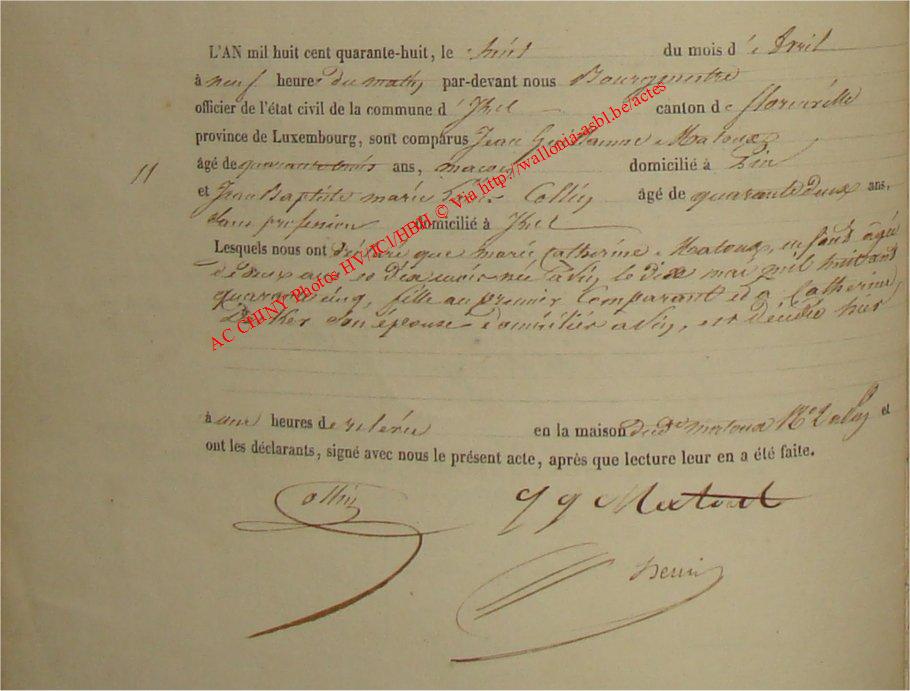 L'AN mil huit cent quarante-huit, le huit du mois d'Avril
à neuf heures du matin par-devant nous Bourgmestre
officier de l'état civil de la commune d'Izel canton de florenville
province de Luxembourg, sont comparus Jean Guillaume Matoux
11 âgé de ans, maçon domicilié à Pin
et Jean Baptiste marie Collin âgé de quarante deux ans,
sans profession domicilié à Izel
Lesquels nous ont déclaré que marie Catherine Matoux, enfant agée
de deux ans et dix mois née à le dix mai mil huit cent
quarante cinq, fille au premier Comparant et à Catherine
son épouse domiciliés a, est décédée hier
à une heures de relevée en la maison matoux et
ont les déclarants, signé avec nous le présent acte, après que lecture leur en a été faite.
Collin J G Matoux
AC CHINY Photos HV/JCl/HBH © Via http://wallonia-asbl.be/actes